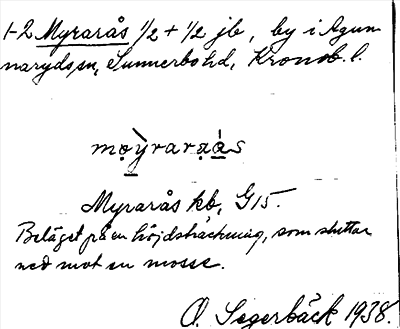 1-2 Myrarås 1/2 + 1/2 jb, by i Agun-
narydssn, Sunnerbo hd, Kronob. l.
Myrarås kb, G15.
Beläget på en höjdsträckning, som sluttar
ned mot en mosse.
O. Segerbäck 1938.